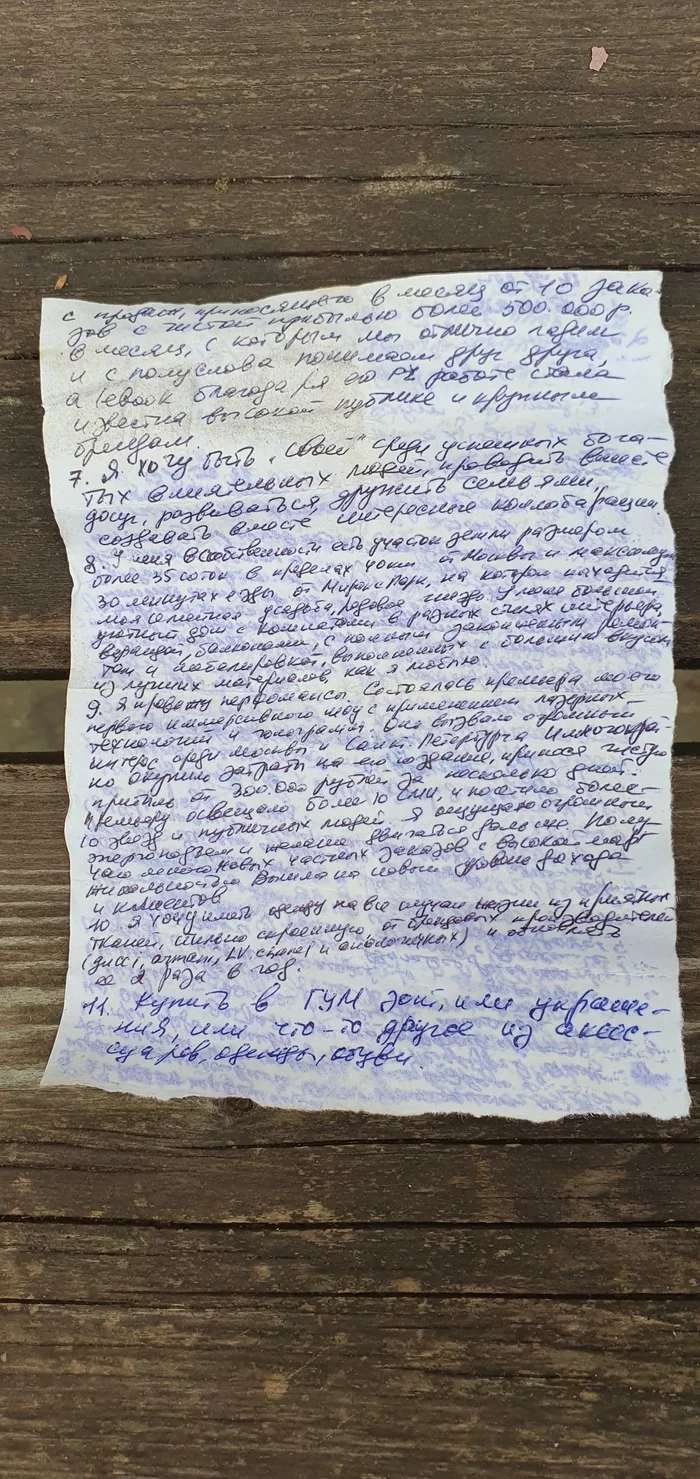 с продаж, приносящего в месяц от 10 зака-
зов с чистой прибылью более 500.000р.
в месяц, с которым мы отлично ладим
и с полуслова понимаем друг друга,
а благодаря его PR работе стала
известна высокой публике и крупным
брендам.
7. Я хочу быть "своей" среди успешных бога-
тых влиятельных людей, проводить вместе
досуг, развиваться, дружить семьями,
создавать вместе интересные коллаборации.
8. У меня в собственности есть участок земли размером
более 35 соток в пределах 40км от Москвы и максимум
30 минутах езды от Миракс Парк, на котором находится
моя поместная усадьба, родовое гнездо. У меня большой
уютный дом с комнатами в разных стилях интерьера,
верандой, балконами, с полным законченным ремон-
том и меблировкой, выполненных с большим вкусом
из лучших материалов, как я люблю.
9. Я провожу перфомансы. Состоялась премьера моего
первого иммерсивного шоу с применением лазерных
технологий и голограмм. Оно вызвало огромный
интерес среди Москвы и Санкт-Петербурга и многократ-
но окупило затраты на его создание, принося чистую
прибыль от 300.000 рублей за несколько дней.
Премьеру освещало более 10 СМИ, и посетило более
10 звезд и публичных людей. Я ощущаю огромный
энергоподъем и желание двигаться дальше. Полу-
чаю много новых частных заказов с высокой мар-
жинальностью. Вышла на новый уровень дохода
и клиентов.
10. Я хочу иметь одежду на все случаи жизни из приятных
тканей, стильно скроенную, от брендовых производителей
(gucci, armani, LV, chanel и аналогичных) и обновлять
ее 2 раза в год.
11. Купить в ГУМ зонт, или украше-
ния, или что-то другое из аксес-
суаров, одежды, обуви.